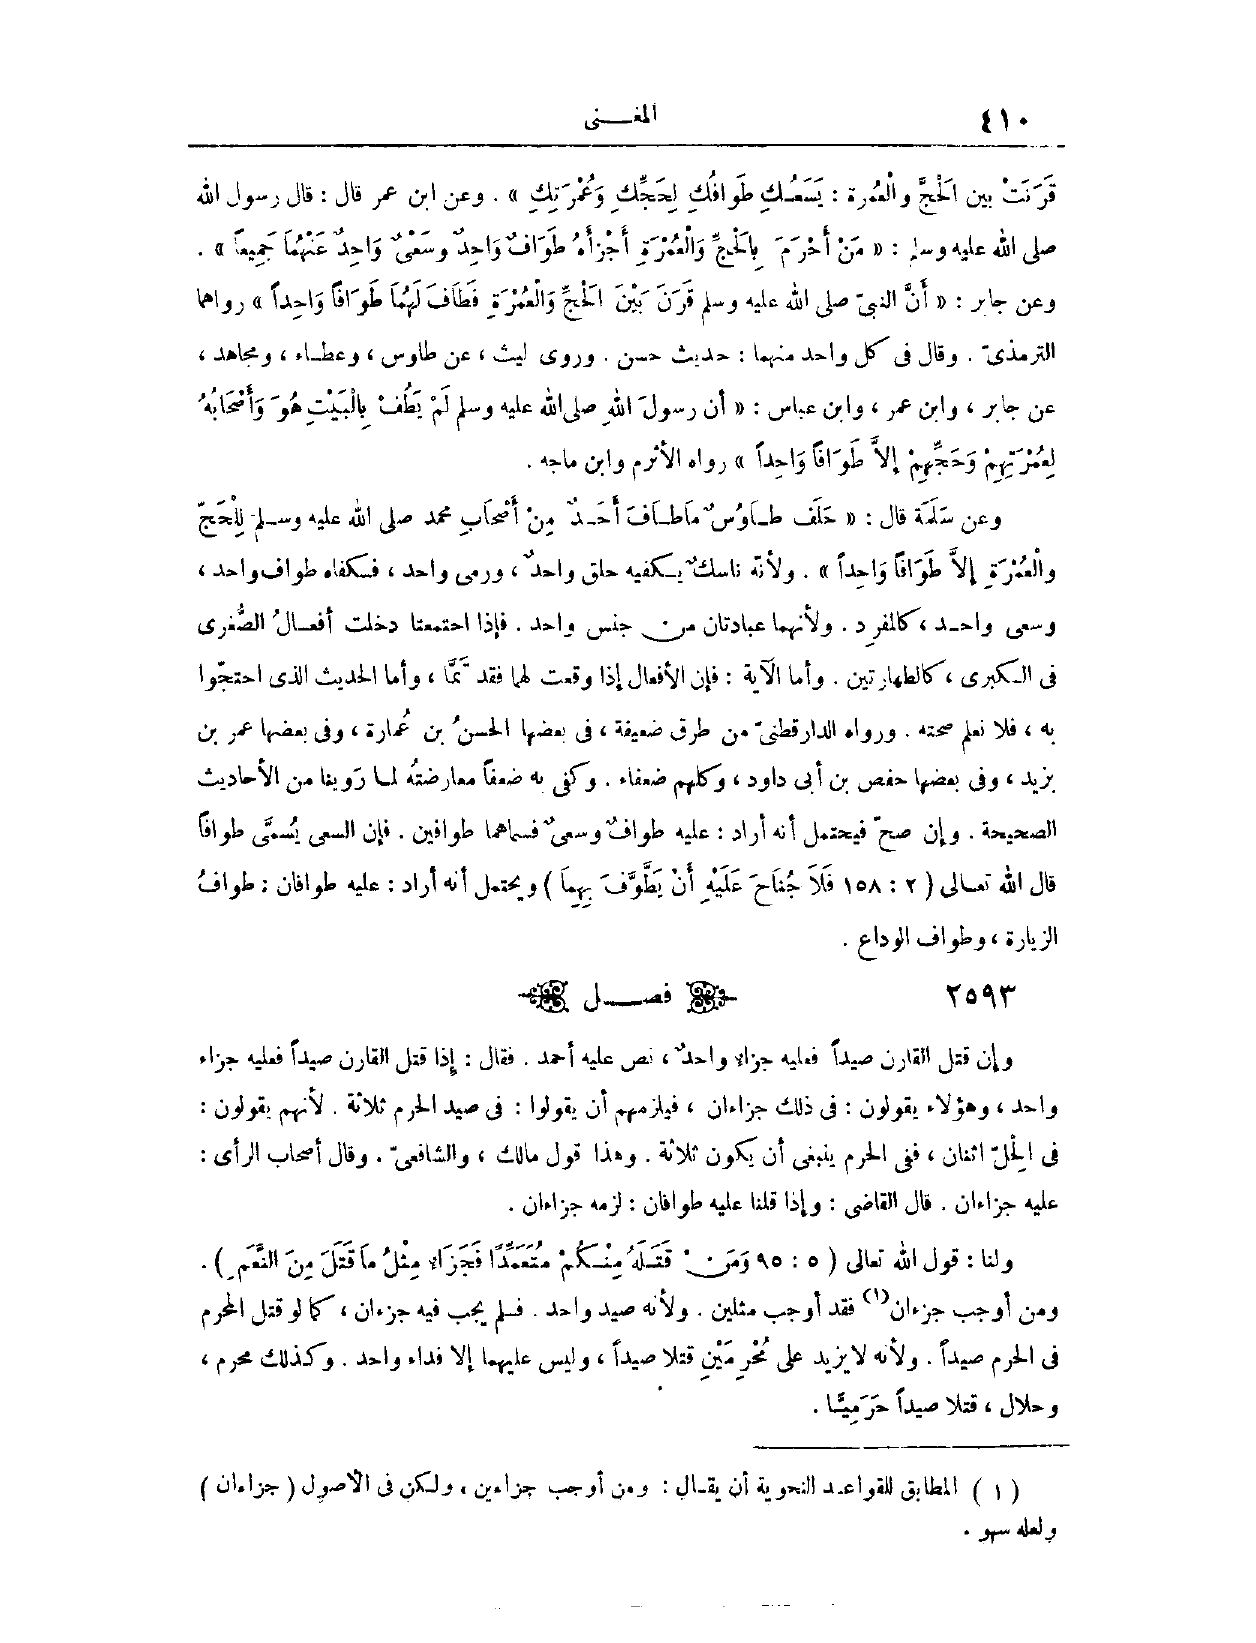 ٤١٠ المغنى
قَرَنَتْ بين الْحَجَّ والْعُمرة : يَسَعُـكِ طَوَافُكِ لِحَجِّكِ وَعُمْرَتِكِ » . وعن ابن عمر قال : قال رسول الله
صلى الله عليه وسلم : « مَنْ أَحْرَمَ بِالْحَجِّ وَالْعُمْرَةِ أَجْزأَهُ طَوَافٌ وَاحِدٌ وسَعْىٌ وَاحِدٌ عَنْهُمَا جَمِيعاً » .
وعن جابر : « أَنَّ النبىّ صلى الله عليه وسلم قَرَنَ بَيْنَ الْحَجِّ وَالْعُمْرَةِ فَطَافَ لَهُمَا طَوَافاً وَاحِداً » رواهما
الترمذىّ . وقال فى كل واحد منهما : حديث حسن . وروى ليث ، عن طاوس ، وعطـاء ، ومجاهد ،
عن جابر ، وابن عمر ، وابن عباس : « أن رسولَ اللهِ صلى الله عليه وسلم لَمْ يَطُفْ بِالْبَيْتِ هُوَ وَأَصْحَابُهُ
لِعُمْرَتِهِمْ وَحَجِّهِمْ إلاَّ طَوَافاً وَاحِداً » رواه الأثرم وابن ماجه .
وعن سَلَمَة قال : « حَلَف طـاوُسٌ مَاطـافَ أَحَـدٌ مِنْ أَصْحَابِ محمد صلى الله عليه وسـلم لِلْحَجّ
والْعُمْرَةِ إلاَّ طَوَافاً وَاحِداً » . ولأنّه ناسكٌ يـكفيه حلق واحدٌ ، ورمى واحد ، فـكفاه طواف واحد ،
وسعى واحـد ، كالمفرِد . ولأنهما عبادتان مـن جنس واحد . فإذا اجتمعتا دخلت أفعـالُ الصُّغرى
فى الـكبرى ، كالطهارتين . وأما الآية : فإن الأفعال إذا وقعت لهما فقد تَمَّا ، وأما الحديث الذى احتجّوا
به ، فلا نعلم صحته . ورواه الدارقطنىّ من طرق ضعيفة ، فى بعضها الحسنُ بن عُمارة ، وفى بعضها عمر بن
يزيد ، وفى بعضها حفص بن أبى داود ، وكلهم ضعفاء . وكفى به ضعفاً معارضتُه لمـا رَوينا من الأحاديث
الصحيحة . وإن صحّ فيحتمل أنه أراد : عليه طوافٌ وسعىٌ فسماهما طوافين . فإن السعى يُسمَّى طوافاً
قال الله تعـالى ( ٢ : ١٥٨ فَلاَ جُنَاحَ عَلَيْهِ أَنْ يَطَّوَّفَ بِهِمَا ) ويحتمل أنه أراد : عليه طوافان : طوافُ
الزيارة ، وطواف الوداع .
٢٥٩٣ فصـــل
وإن قتل القارن صيداً فعليه جزاء واحدٌ ، نص عليه أحمد . فقال : إذا قتل القارن صيداً فعليه جزاء
واحد ، وهؤلاء يقولون : فى ذلك جزاءان ، فيلزمهم أن يقولوا : فى صيد الحرم ثلاثة . لأنهم يقولون :
فى الْحِلّ اثنان ، ففى الحرم ينبغى أن يكون ثلاثة . وهذا قول مالك ، والشافعىّ . وقال أصحاب الرأى :
عليه جزاءان . قال القاضى : وإذا قلنا عليه طوافان : لزمه جزاءان .
ولنا : قول الله تعالى ( ٥ : ٩٥ وَمَنْ قَتَـلَهُ مِنْـكُمْ مُتَعَمِّدًا فَجَزَاء مِثْلُ مَا قَتَلَ مِنَ النَّعَمِ ) .
ومن أوجب جزءان(١) فقد أوجب مثلين . ولأنه صيد واحد . فـلم يجب فيه جزءان ، كما لو قتل المحرم
فى الحرم صيداً . ولأنه لا يزيد على مُحْرِمَيْنِ قتلا صيداً ، وليس عليهما إلا فداء واحد . وكذلك محرم ،
وحلال ، قتلا صيداً حَرَمِيًّـا .
( ١ ) المطابق للقواعـد النحوية أن يقـال : ومن أوجب جزاءين ، ولكن فى الأصول ( جزاءان )
ولعله سهو .